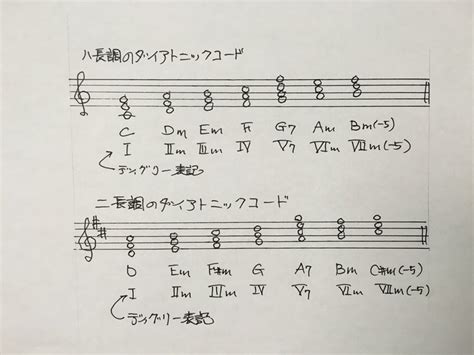 ハ長調のダイアトニックコード
C Dm Em F G7 Am Bm(-5)
I IIm IIIm IV V7 VIm VIIm(-5)
ディグリー表記
ニ長調のダイアトニックコード
D Em F#m G A7 Bm C#m(-5)
I IIm IIIm IV V7 VIm VIIm(-5)
ディグリー表記